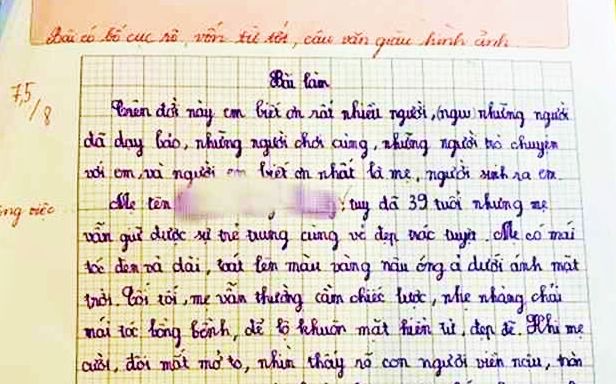 Bài có bố cục rõ, vốn từ tốt, câu văn giàu hình ảnh
Bài làm
7,5/8
Trên đời này em biết ơn rất nhiều người, (người) những người
đã dạy bảo, những người chơi cùng, những người trò chuyện
với em, và người em biết ơn nhất là mẹ, người sinh ra em.
Mẹ tên tuy đã 39 tuổi nhưng mẹ
ông việc
vẫn giữ được sự trẻ trung cùng vẻ đẹp trác tuyệt. Mẹ có mái
tóc đen và dài, toát lên màu vàng nâu óng ả dưới ánh mặt
trời. Tối tối, mẹ vẫn thường cầm chiếc lược, nhẹ nhàng chải
mái tóc bồng bềnh, để lộ khuôn mặt hiền từ, đẹp đẽ. Khi mẹ
cười, đôi mắt mở to, nhìn thấy rõ con người viên nâu, tròn